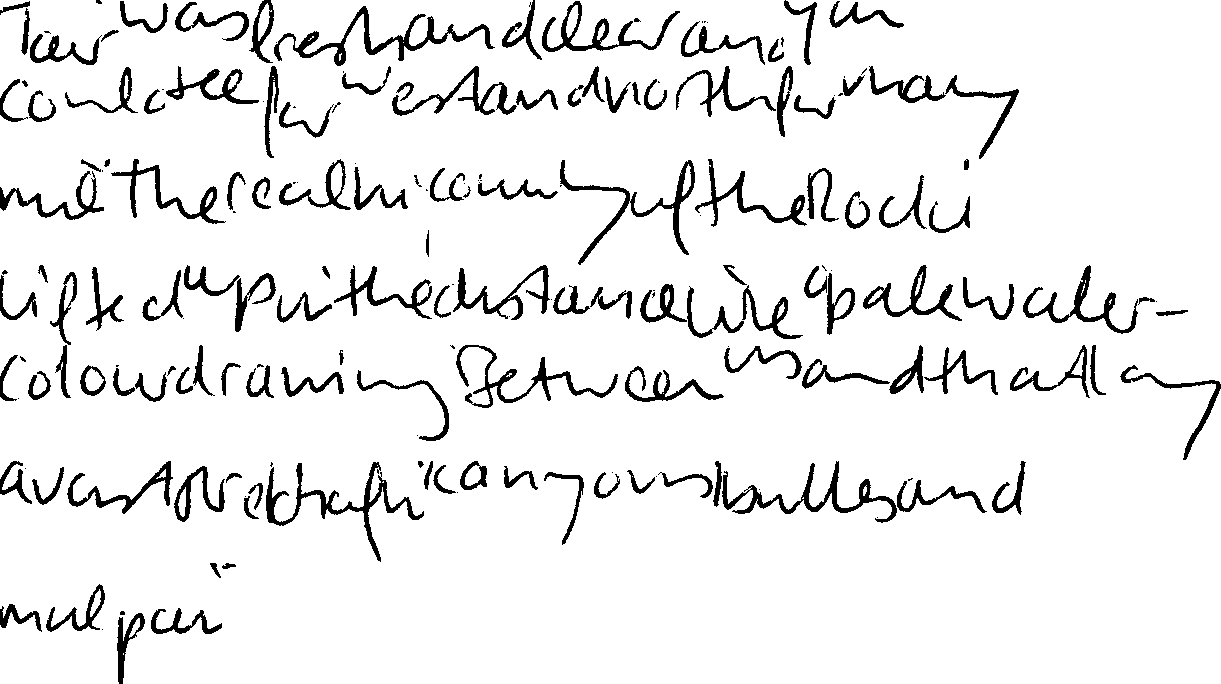 air was fresh and clear and you
could see far west and north for many
mile the real hi country of the Rocki
lifted up in the distance like a pale water-
colour drawing Between us and that lay
a vast stretch of canyons bulles and